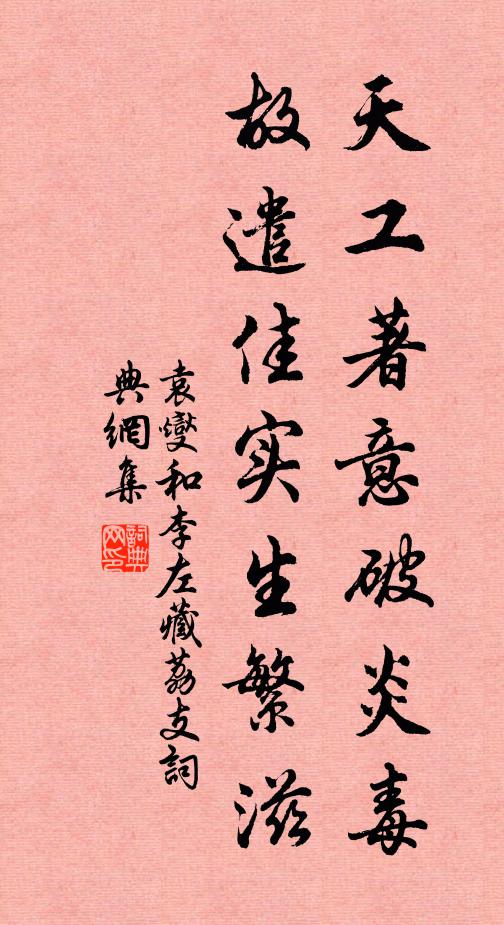 天工著意破炎毒
故遣佳实生繁滋
袁燮和李左藏荔支詞
典網集
詞典
网印